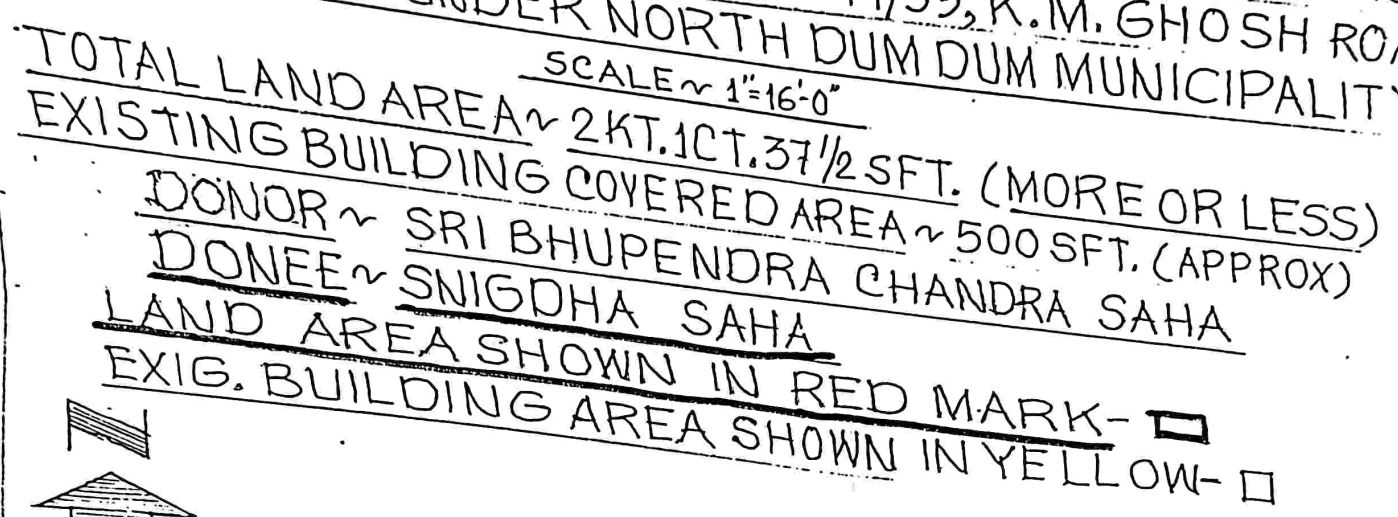 K.M. GHOSH
UNDER NORTH DUM DUM MUNICIPALITY
SCALE ~ 1"=16'-0"
TOTAL LAND AREA ~ 2KT.1CT.37 1/2 SFT. (MORE OR LESS)
EXISTING BUILDING COVERED AREA ~ 500 SFT. (APPROX)
DONOR ~ SRI BHUPENDRA CHANDRA SAHA
DONEE ~ SNIGDHA SAHA
LAND AREA SHOWN IN RED MARK-
EXIG. BUILDING AREA SHOWN IN YELLOW-
N